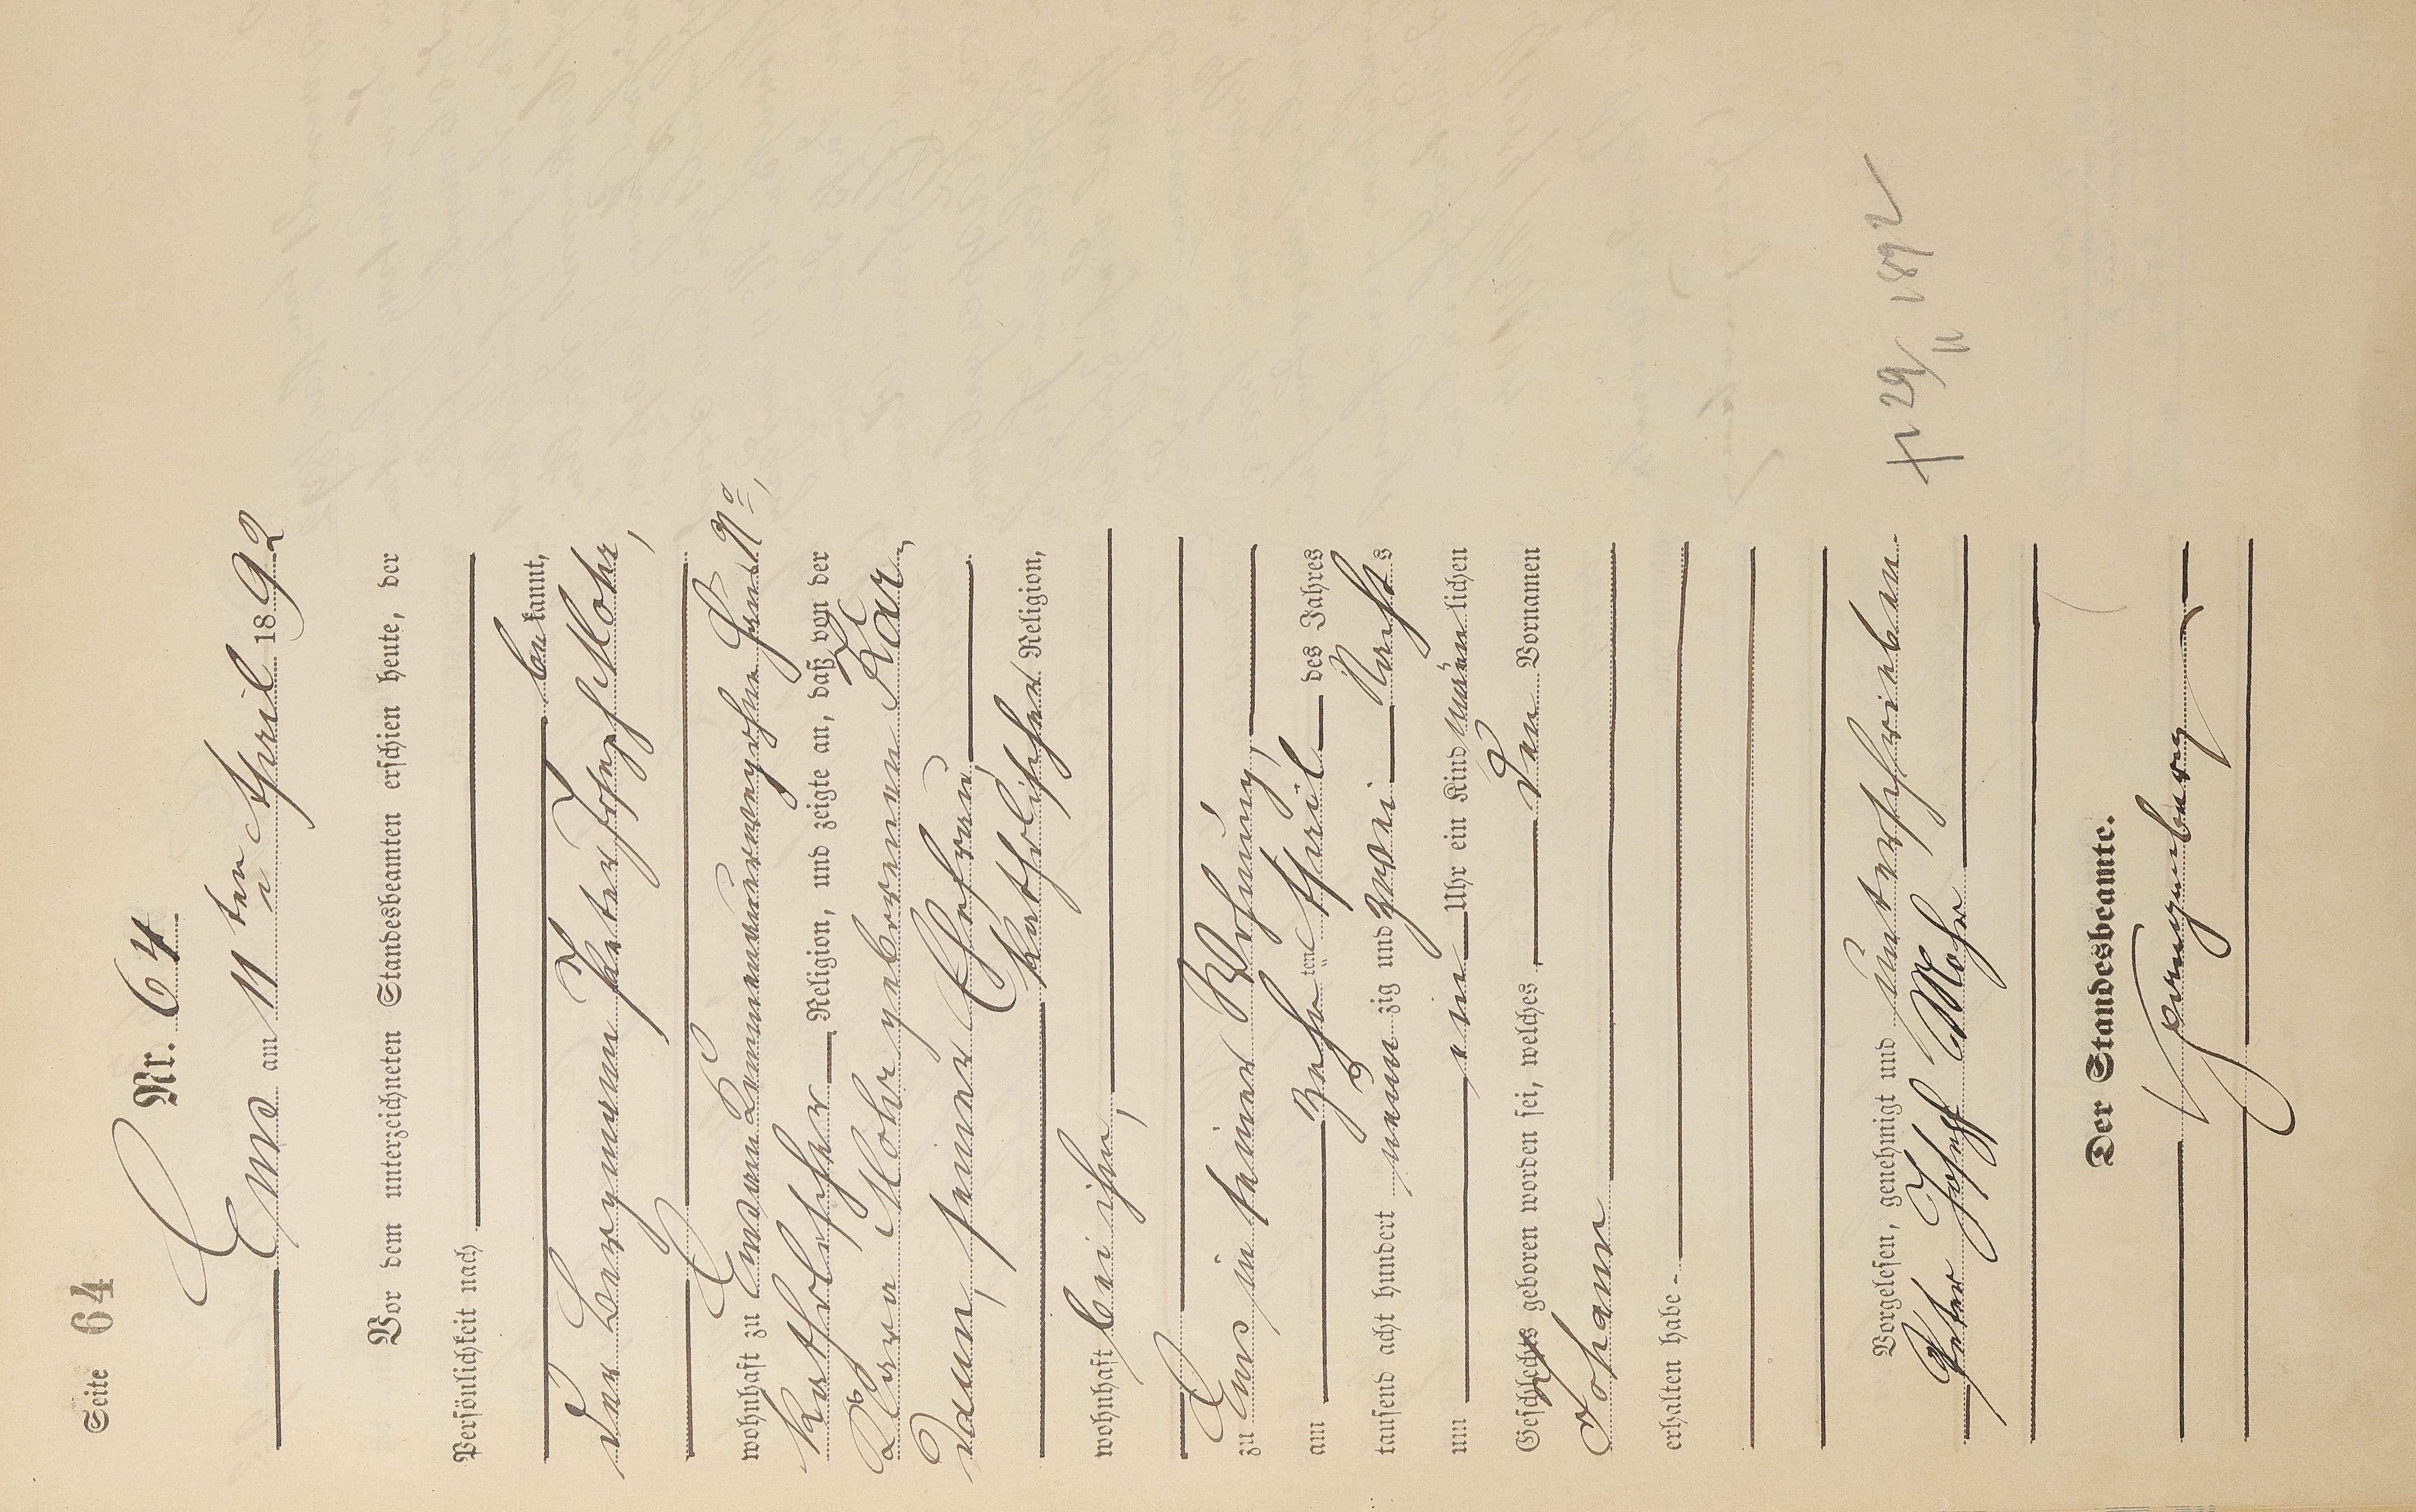 Seite 64
Nr. 64
Ems am 11ten April 1892
Vor dem unterzeichneten Standesbeamten erschien heute, der
Persönlichkeit nach
bekannt,
der Bergmann Peter Joseph Mohr,
wohnhaft zu Ems
katholischer Religion, und zeigte an, daß von der
Clara Mohr geborenen Kar
seiner Ehefrau,
katholischer Religion,
wohnhaft bei ihm,
zu Ems in seiner Wohnung,
am zehnten April des Jahres
tausend acht hundert neunzig und zwei Nachts
um ein Uhr ein Kind männlichen
Geschlechts geboren worden sei, welches den Vornamen
Johann
erhalten habe
Vorgelesen, genehmigt und unterschrieben
Peter Joseph Mohr
+ 29/11 1892
Der Standesbeamte.